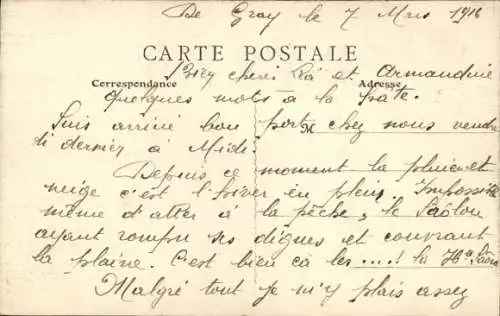 De Gray le 7 Mars 1916
CARTE POSTALE
Correspondance
Adresse
chéri et Armandine
Quelques mots à la hâte.
Suis arrivé bon port chez nous vendre
di dernier à Midi.
M
Depuis ce moment la pluie et
neige c'est l'hiver en plein. Impossible
même d'aller à la pêche, le Saôlon
ayant rompu ses digues et couvrant
la plaine. C'est bien ça les ....! la Hte Saône
Malgré tout je m'y plais assez